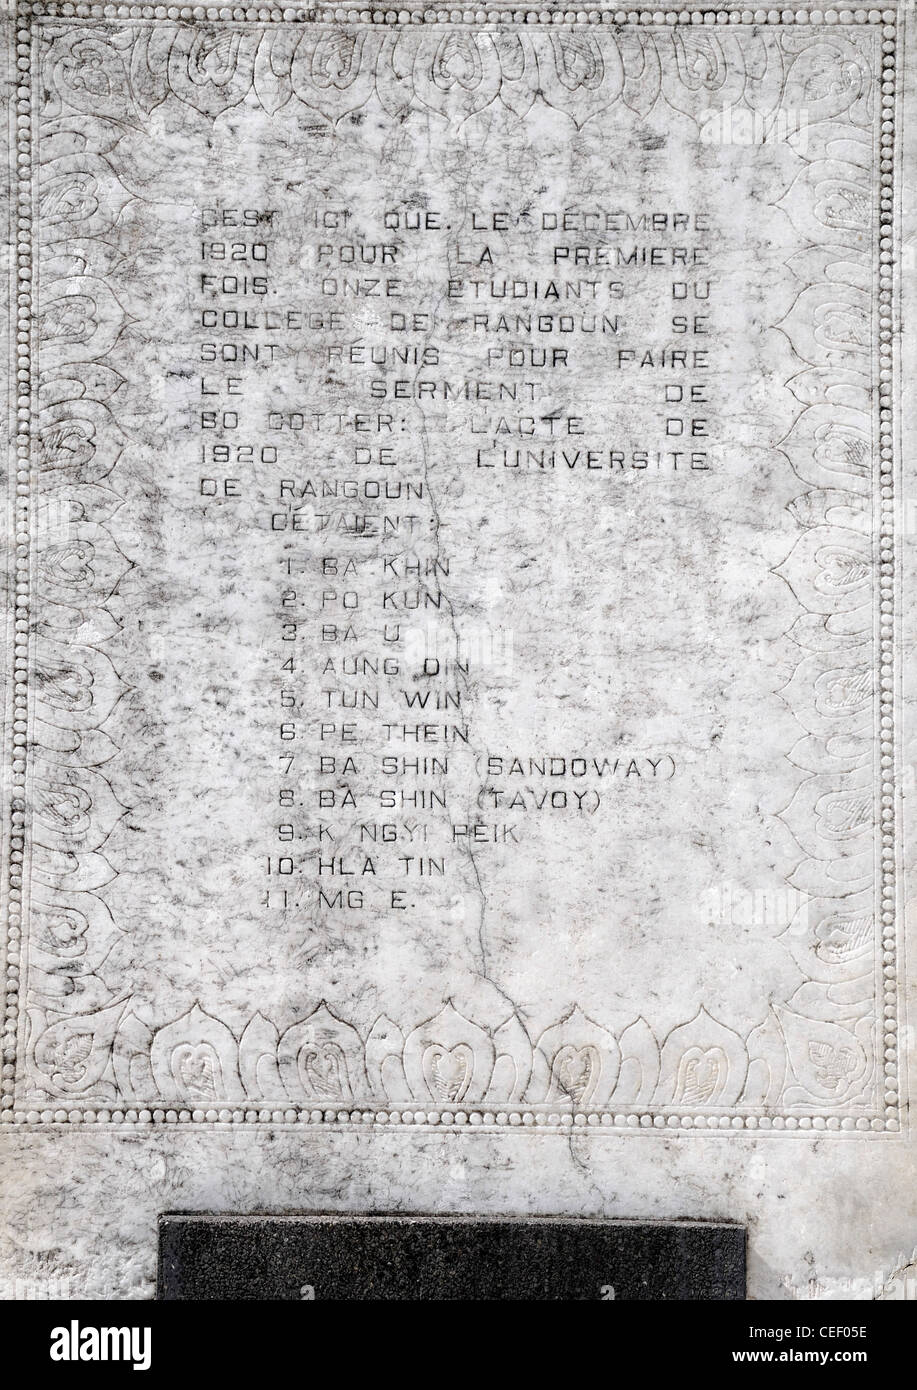 CEST ICI QUE. LE DÉCEMBRE
1920 POUR LA PREMIERE
FOIS. ONZE ÉTUDIANTS DU
COLLEGE DE RANGOUN SE
SONT RÉUNIS POUR FAIRE
LE SERMENT DE
BO COTTER: L'ACTE DE
1920 DE L'UNIVERSITE
DE RANGOUN
CÉTAIENT:-
1. BA KHIN
2. PO KUN
3. BA U
4. AUNG DIN
5. TUN WIN
6. PE THEIN
7. BA SHIN (SANDOWAY)
8. BA SHIN (TAVOY)
9. K NGYI PEIK
10. HLA TIN
11. MG E.
alamy
alamy
Image ID: CEF05E
www.alamy.com